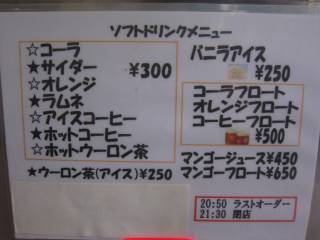 ソフトドリンクメニュー
☆コーラ
★サイダー ¥300
☆オレンジ
★ラムネ
☆アイスコーヒー
★ホットコーヒー
☆ホットウーロン茶
★ウーロン茶(アイス) ¥250
バニラアイス
¥250
コーラフロート
オレンジフロート
コーヒーフロート
¥500
マンゴージュース¥450
マンゴーフロート¥650
20:50 ラストオーダー
21:30 閉店